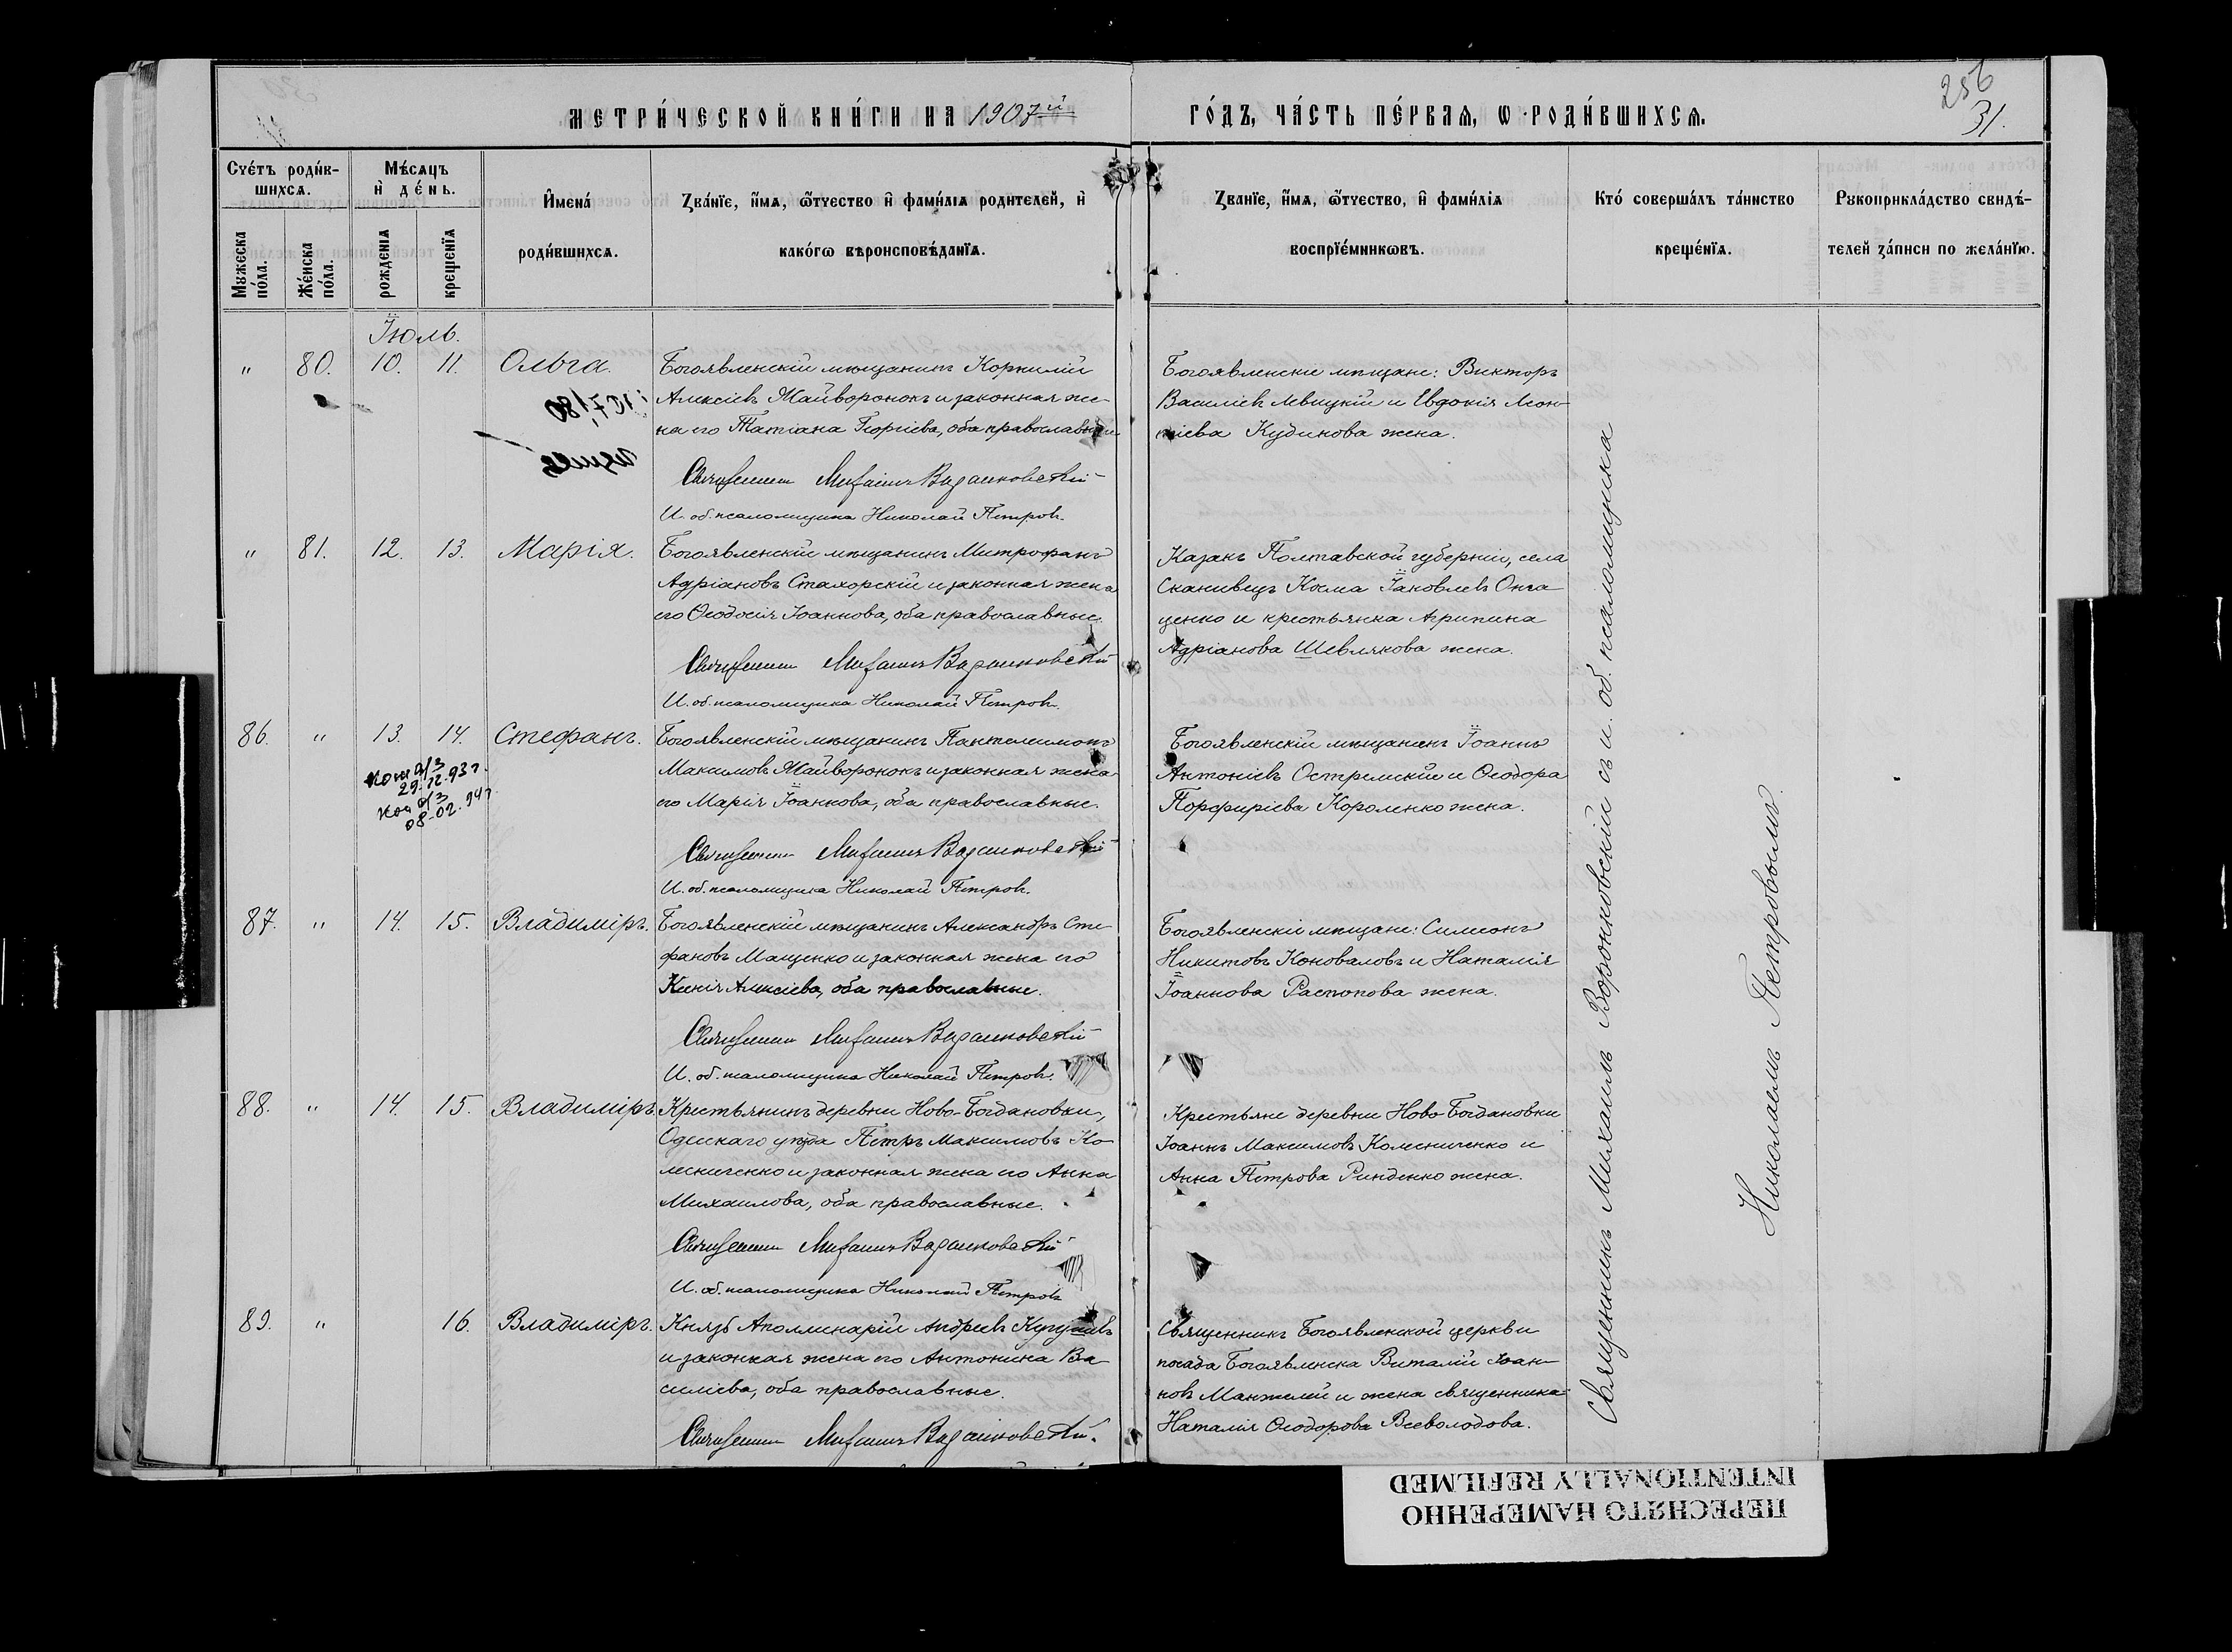 256
31.
МЕТРИ́ЧЕСКОЙ КНИ́ГИ НА 1907й ГО́ДЪ, ЧА́СТЬ ПЕ́РВАѦ, Ѡ РОДИ́ВШИХСѦ.
Счетъ роди́в-
шихсѧ.
Мужеска по́ла.
Же́нска по́ла.
Мѣ́сѧцъ
и де́нь.
рожденїѧ
крещенїѧ
Имена́
роди́вшихсѧ.
Зва́нїе, имѧ, ѡтчество и фами́лїѧ родителей, и
како́гѡ вѣроисповѣ́данїѧ.
Званїе, имѧ, ѡтчество, и фами́лїѧ
воспрїе́мниковъ.
Кто́ соверша́лъ та́инство
креще́нїѧ.
Рукоприкла́дство свидѣ́-
телей за́писи по жела́нїю.
Іюль.
" 80. 10. 11. Ольга.
Богоявленскій мѣщанинъ Корнилій
Алексіевъ Майворонокъ и законная же-
на его Татіана Георгіева, оба православные
Священникъ Михаилъ Воронковскій
И. об. псаломщика Николай Петровъ.
Богоявленскіе мѣщане: Викторъ
Василіевъ Левицкій и Евдокія Леон-
тіева Кудинова жена.
" 81. 12. 13. Марія.
Богоявленскій мѣщанинъ Митрофанъ
Адріановъ Стахорскій и законная жена
его Ѳеодосія Іоаннова, оба православные.
Священникъ Михаилъ Воронковскій
И. об. псаломщика Николай Петровъ.
Казакъ Полтавской губерніи, села
Косма Іаковлевъ Онга
ценко и крестьянка Агрипина
Адріанова Шевлякова жена.
86. " 13. 14. Стефанъ.
29.12.93г.
08-02.94г
Богоявленскій мѣщанинъ Пантелеимонъ
Максимовъ Майворонокъ и законная жена
его Марія Іоаннова, оба православные.
Священникъ Михаилъ Воронковскій
И. об. псаломщика Николай Петровъ.
Богоявленскій мѣщанинъ Іоаннъ
Антоніевъ и Ѳеодора
Порфиріева Короленко жена.
87. " 14. 15. Владиміръ.
Богоявленскій мѣщанинъ Александръ Сте
фановъ Мащенко и законная жена его
Ксенія Алексіева, оба православные.
Священникъ Михаилъ Воронковскій
И. об. псаломщика Николай Петровъ.
Богоявленскіе мѣщане: Симеонъ
Никитовъ Коноваловъ и Наталія
Іоаннова Распопова жена.
88. " 14. 15. Владиміръ.
Крестьянинъ деревни Ново-Богдановки,
Одесскаго уѣзда Петръ Максимовъ Ко-
лесниченко и законная жена его Анна
Михаилова, оба православные.
Священникъ Михаилъ Воронковскій
И. об. псаломщика Николай Петровъ
Крестьяне деревни Ново-Богдановки
Іоаннъ Максимовъ Колесниченко и
Анна Петрова Ринденко жена.
89. " 16. Владиміръ.
Князь Аполлинарій Андреевъ
и законная жена его Антонина Ва-
силіева, оба православные.
Священникъ Михаилъ Воронковскій.
Священникъ Богоявленской церкви
посада Богоявленска Виталій Іоан-
новъ Манжелей и жена священника
Наталія Ѳеодорова Всеволодова.
Священникъ Михаилъ Воронковскій съ и. об. псаломщика
Николаемъ Петровымъ.
ПЕРЕСНЯТО НАМЕРЕННО
INTENTIONALLY REFILMED